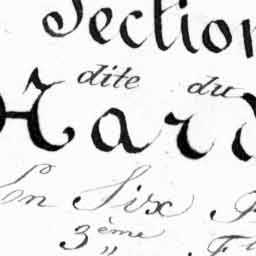 Section
dite du
Hard
En Six F
3ème F